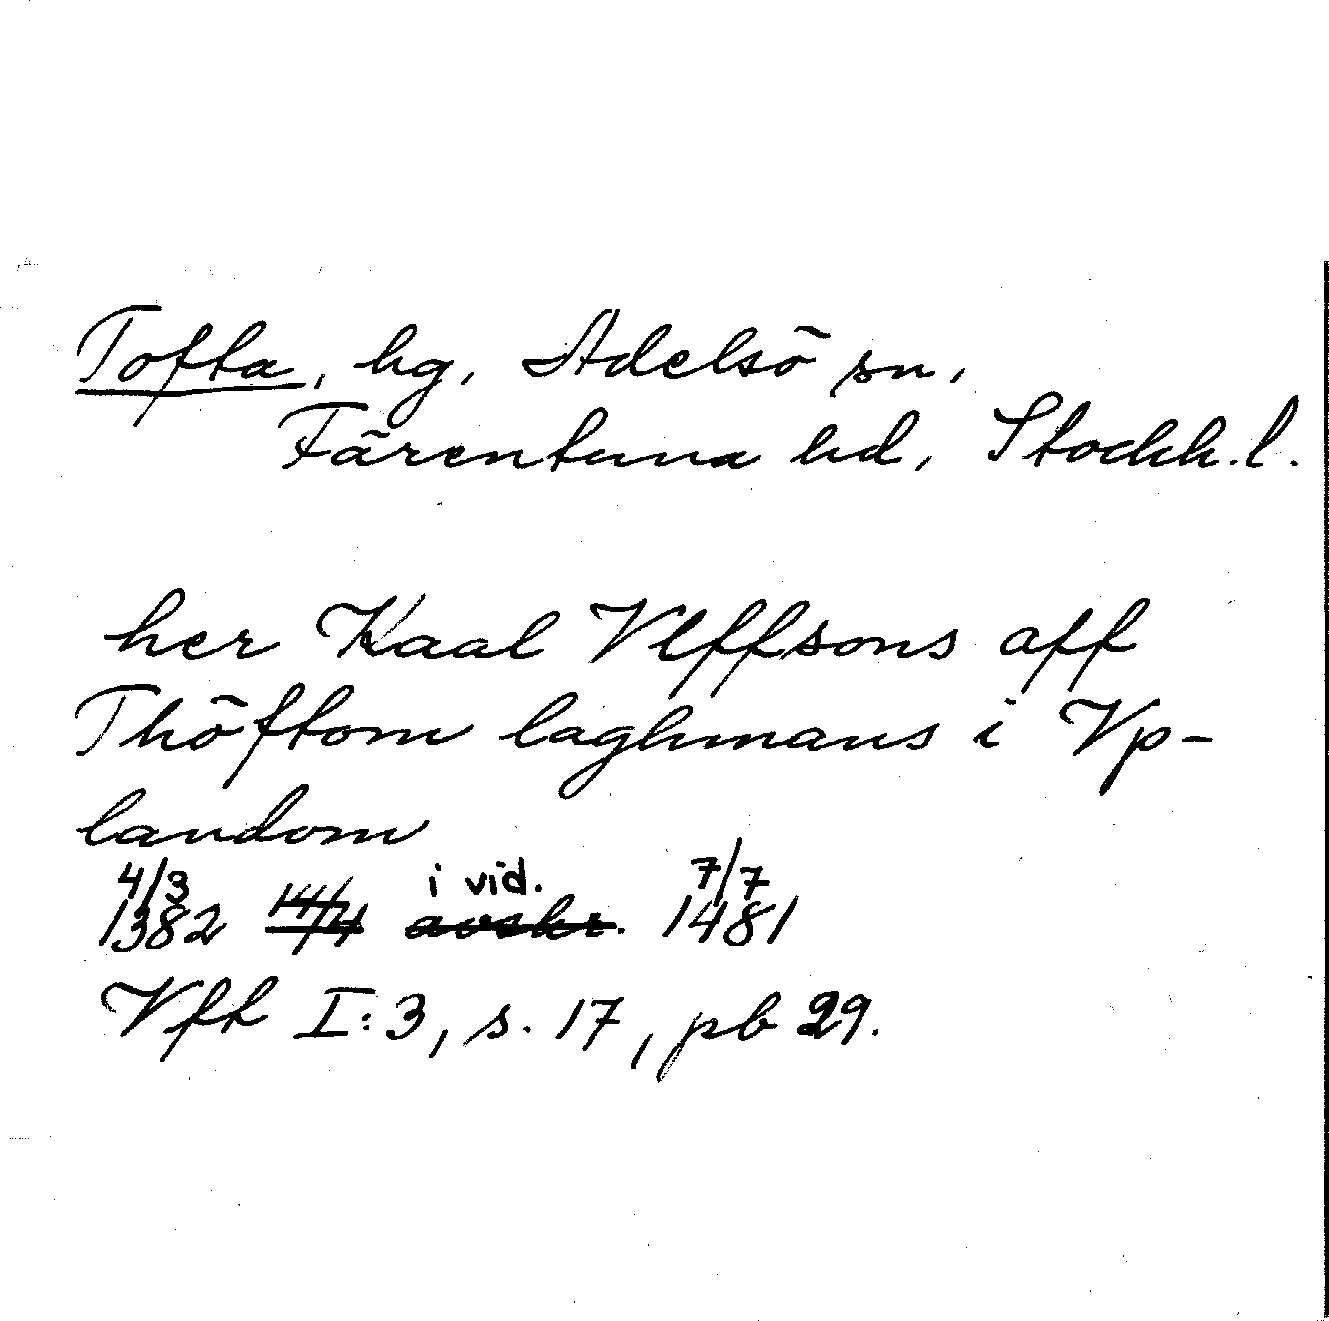 Tofta, hg, Adelsö sn,
Färentuna hd, Stockh.l.
her Kaal Vlffsons aff
Thöftom laghmans i Vp-
landom
4/3 i vid. 7/7
1382 14/4 avskr. 1481
Vfh I:3, s. 17, pb 29.